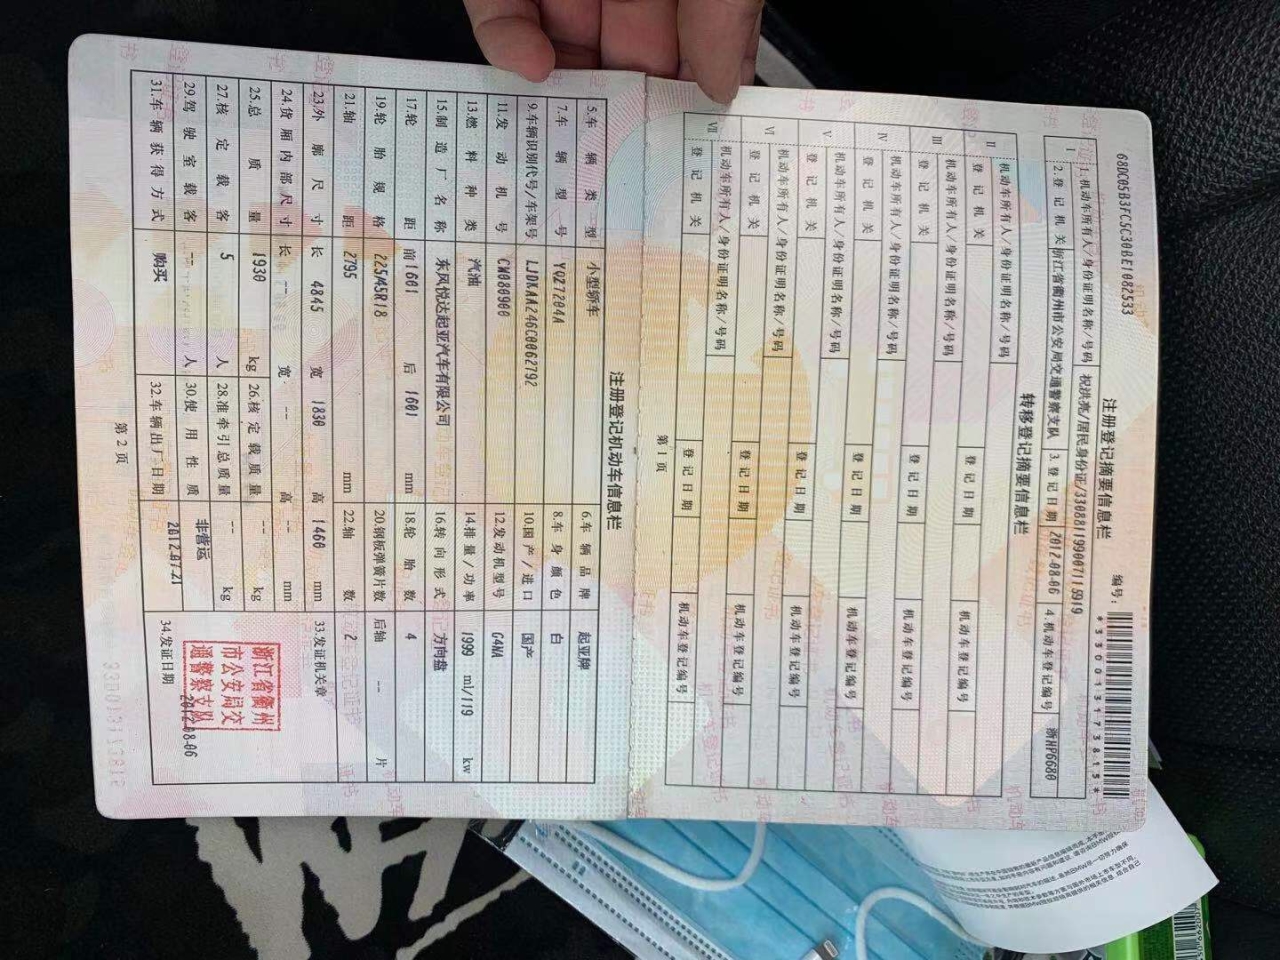 68DC05B3FC5C30BE1082533
注册登记摘要信息栏
编号：
*330013173815*
I
1.机动车所有人/身份证明名称/号码 权洪亮/居民身份证/330881199007115919
2.登记机关 浙江省衢州市公安局交通警察支队 3.登记日期 2012-08-06 4.机动车登记编号 浙HP6680
转移登记摘要信息栏
II 机动车所有人/身份证明名称/号码
登记机关 登记日期 机动车登记编号
III 机动车所有人/身份证明名称/号码
登记机关 登记日期 机动车登记编号
IV 机动车所有人/身份证明名称/号码
登记机关 登记日期 机动车登记编号
V 机动车所有人/身份证明名称/号码
登记机关 登记日期 机动车登记编号
VI 机动车所有人/身份证明名称/号码
登记机关 登记日期 机动车登记编号
VII 机动车所有人/身份证明名称/号码
登记机关 登记日期 机动车登记编号
第1页
注册登记机动车信息栏
5.车辆类型 小型轿车 6.车辆品牌 起亚牌
7.车辆型号 YQZ7204A 8.车身颜色 白
9.车辆识别代号/车架号 LJDKAA246C0062792 10.国产/进口 国产
11.发动机号 CW080900 12.发动机型号 G4NA
13.燃料种类 汽油 14.排量/功率 1999 ml/119 kw
15.制造厂名称 东风悦达起亚汽车有限公司 16.转向形式 方向盘
17.轮距 前1601 后1601 mm 18.轮胎数 4
19.轮胎规格 225/45R18 20.钢板弹簧片数 后轴 -- 片
21.轴距 2795 mm 22.轴数 2
23.外廓尺寸 长 4845 宽 1830 高 1460 mm 33.发证机关章
24.货厢内部尺寸 长 -- 宽 -- 高 -- mm
25.总质量 1930 kg 26.核定载质量 -- kg
27.核定载客 5 人 28.准牵引总质量 -- kg
29.驾驶室载客 -- 人 30.使用性质 非营运
31.车辆获得方式 购买 32.车辆出厂日期 2012.07.21 34.发证日期 2012-08-06
浙江省衢州
市公安局交
通警察支队
第2页